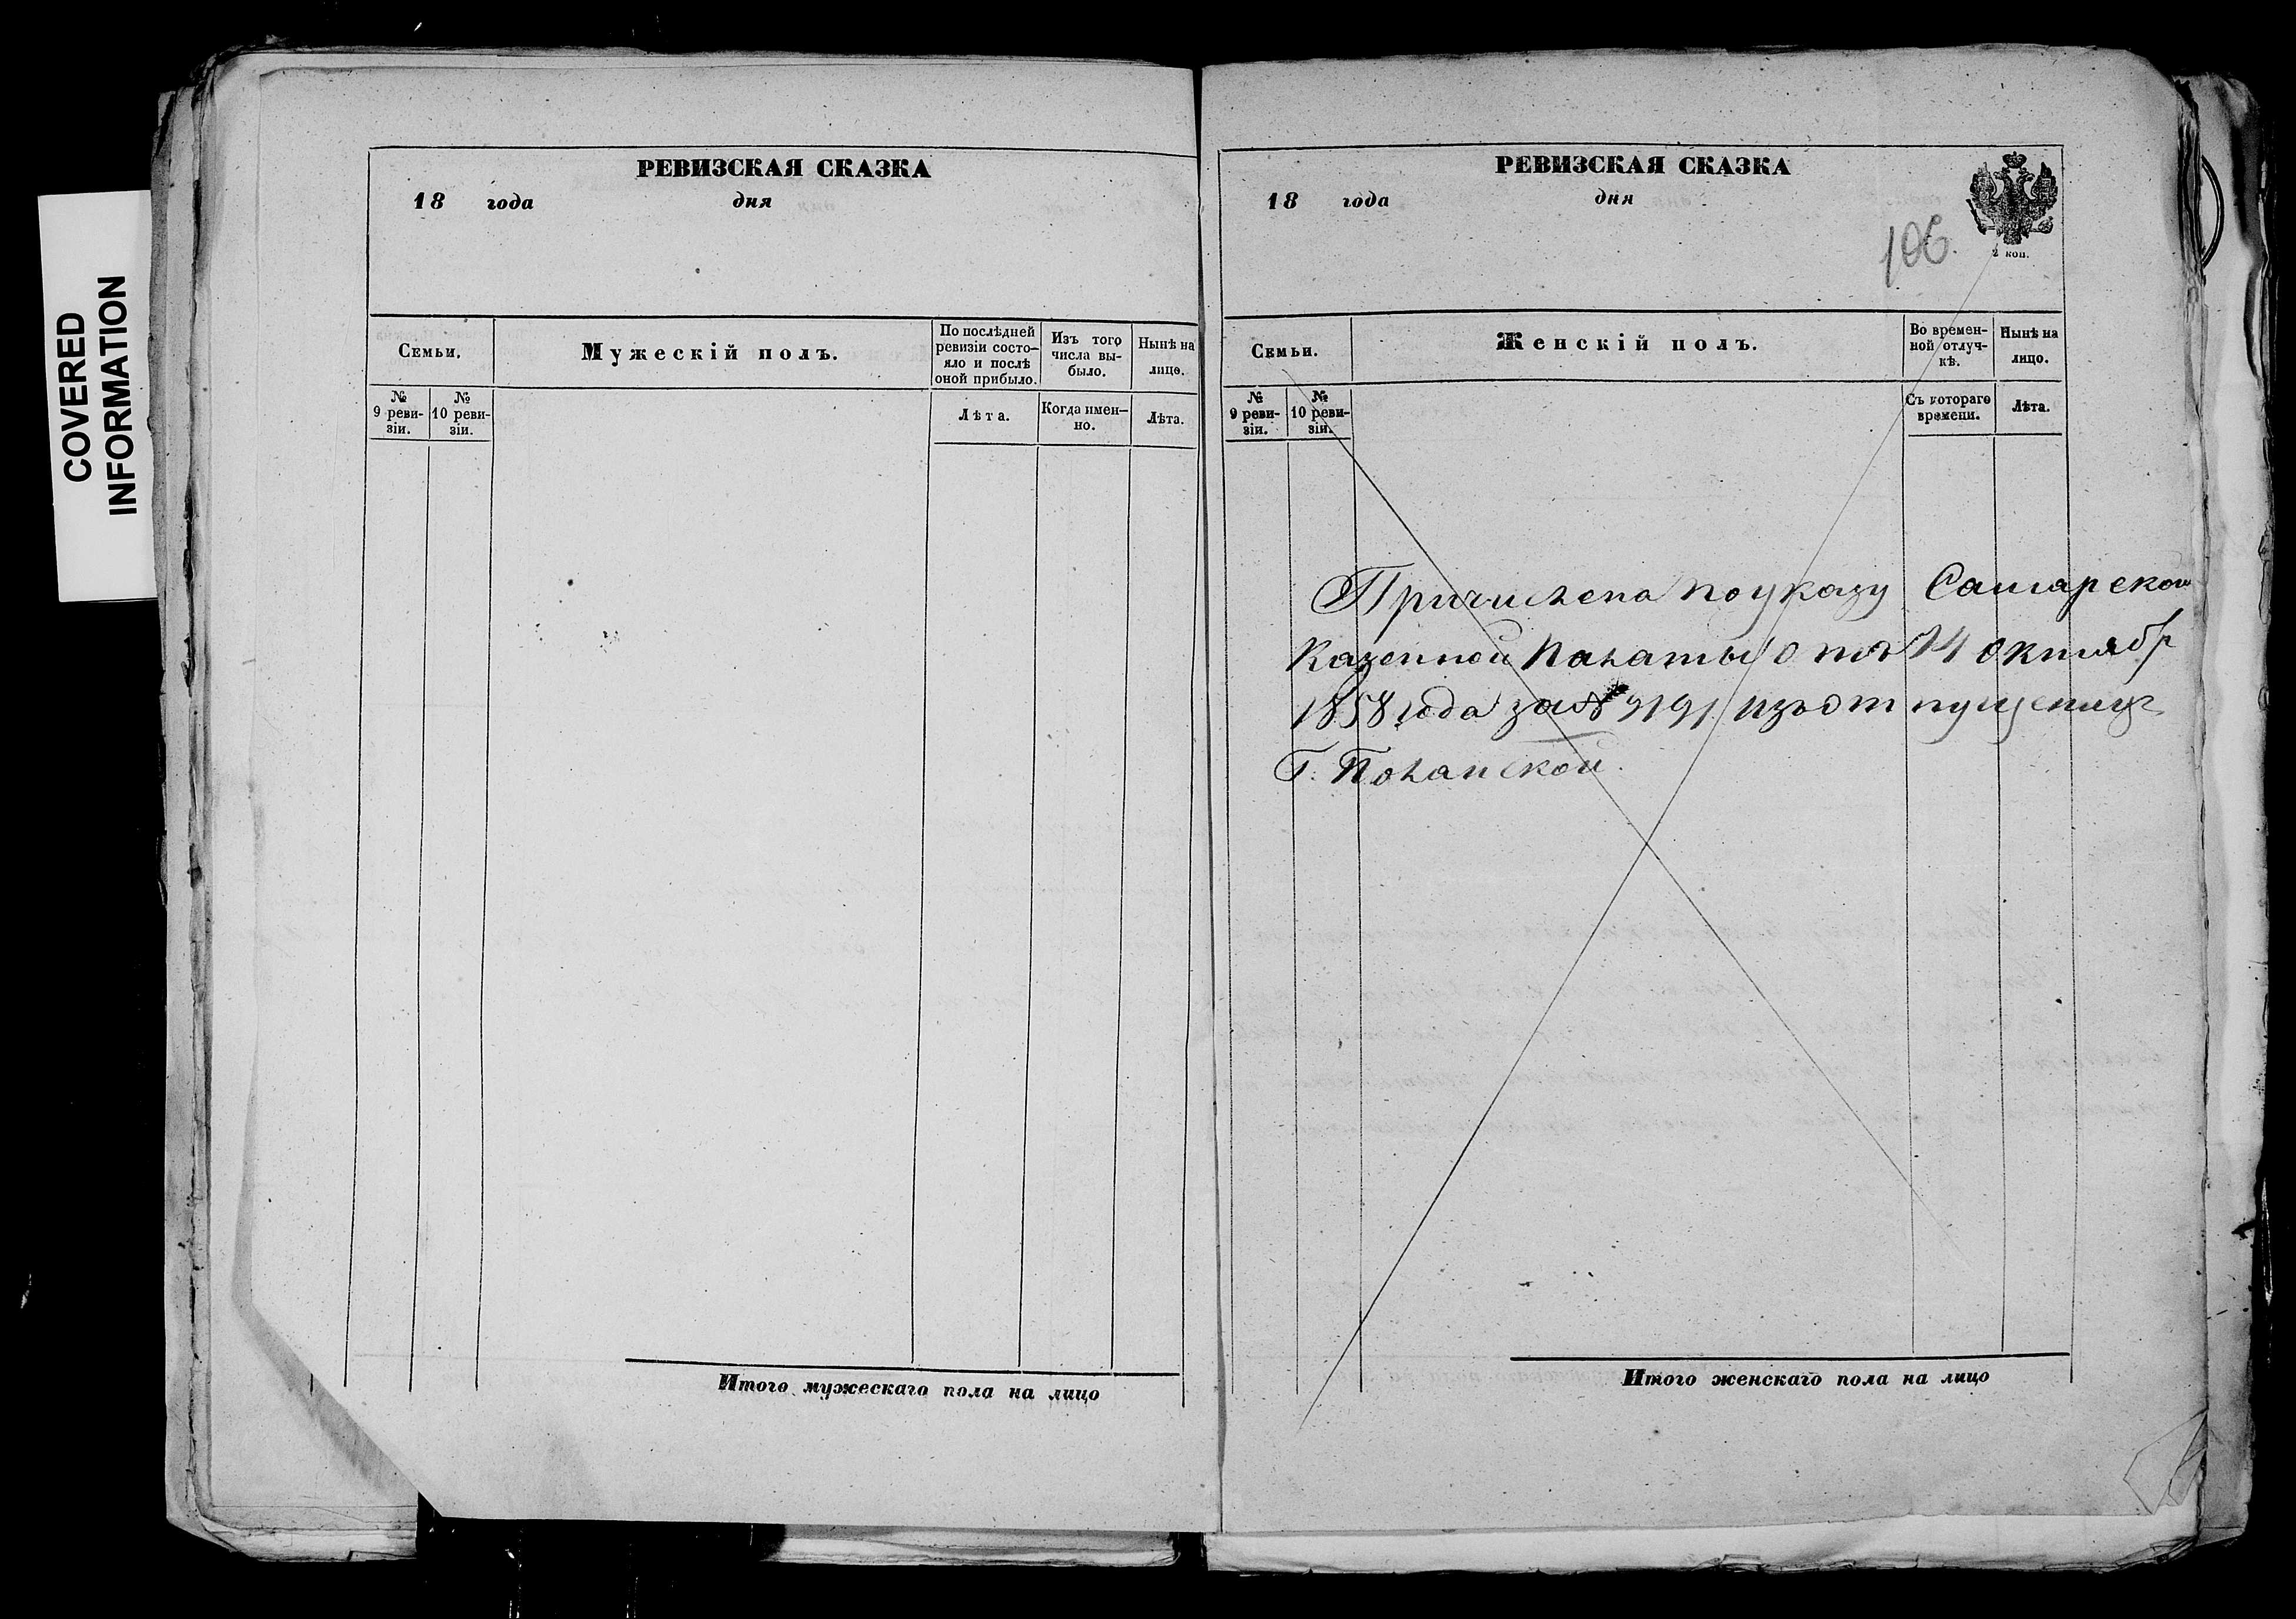 COVERED
INFORMATION
РЕВИЗСКАЯ СКАЗКА
18 года дня
Семьи.
Мужескій полъ.
По послѣдней
ревизіи состо-
яло и послѣ
оной прибыло.
Изъ того
числа вы-
было.
Нынѣ на
лицо.
№
9 реви-
зіи.
№
10 реви-
зіи.
Лѣта.
Когда имен-
но.
Лѣта.
Итого мужескаго пола на лицо
РЕВИЗСКАЯ СКАЗКА
18 года дня
106.
2 коп.
Семьи.
Женскій полъ.
Во времен-
ной отлуч-
кѣ.
Нынѣ на
лицо.
№
9 реви-
зіи.
№
10 реви-
зіи.
Съ котораго
времени.
Лѣта.
Причислена по указу Самарской
Казенной Палаты отъ 14 октябр
1858 года за № 9191 изъ отпущениц
Г. Поланской.
Итого женскаго пола на лицо